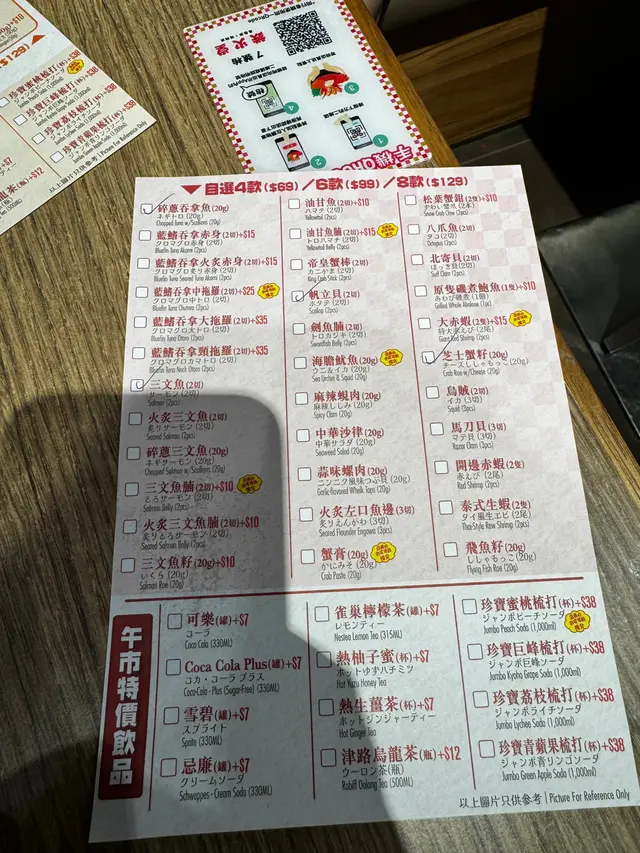 ▼自選4款($69)／6款($99)／8款($129)
碎蔥吞拿魚(20g)
ネギトロ (20g)
Chopped Tuna w/Scallions (20g)
藍鰭吞拿赤身(2切)+$15
クロマグロ赤身 (2切)
Bluefin Tuna Akami (2pcs)
藍鰭吞拿火炙赤身(2切)+$15
クロマグロ炙り赤身 (2切)
Bluefin Tuna Seared Tuna Akami (2pcs)
藍鰭吞拿中拖羅(2切)+$25
クロマグロ中トロ (2切)
Bluefin Tuna Chutoro (2pcs)
藍鰭吞拿大拖羅(2切)+$35
クロマグロ大トロ (2切)
Bluefin Tuna Otoro (2pcs)
藍鰭吞拿頸拖羅(2切)+$35
クロマグロカマトロ (2切)
Bluefin Tuna Neck Otoro (2pcs)
三文魚(2切)
サーモン (2切)
Salmon (2pcs)
火炙三文魚(2切)
炙りサーモン (2切)
Seared Salmon (2pcs)
碎蔥三文魚(20g)
ネギサーモン (20g)
Chopped Salmon w/Scallions (20g)
三文魚腩(2切)+$10
とろサーモン (2切)
Salmon Belly (2pcs)
火炙三文魚腩(2切)+$10
炙りとろサーモン (2切)
Seared Salmon Belly (2pcs)
三文魚籽(20g)+$10
いくら (20g)
Salmon Roe (20g)
油甘魚(2切)+$10
ハマチ (2切)
Yellowtail (2pcs)
油甘魚腩(2切)+$15
トロハマチ (2切)
Yellowtail Belly (2pcs)
帝皇蟹棒(2切)
カニかま (2切)
King Crab Stick (2pcs)
帆立貝(2切)
ホタテ (2切)
Scallop (2pcs)
劍魚腩(2切)
トロカジキ (2切)
Swordfish Belly (2pcs)
海膽魷魚(20g)
ウニ&イカ (20g)
Sea Urchin & Squid (20g)
麻辣蜆肉(20g)
麻辣しじみ (20g)
Spicy Clam (20g)
中華沙律(20g)
中華サラダ (20g)
Seaweed Salad (20g)
蒜味螺肉(20g)
ニンニク風味つぶ貝 (20g)
Garlic-flavored Whelk Tops (20g)
火炙左口魚邊(3切)
炙りえんがわ (3切)
Seared Flounder Engawa (3pcs)
蟹膏(20g)
かにみそ (20g)
Crab Paste (20g)
松葉蟹鉗(2隻)+$10
ずわい蟹爪 (2本)
Snow Crab Claw (2pcs)
八爪魚(2切)
タコ (2切)
Octopus (2pcs)
北寄貝(2切)
ほっき貝 (2切)
Surf Clam (2pcs)
原隻磯煮鮑魚(1隻)+$10
あわび磯煮 (1個)
Grilled Whole Abalone (1pc)
大赤蝦(2隻)+$15
特大赤えび (2尾)
Giant Red Shrimp (2pcs)
芝士蟹籽(20g)
チーズししゃもっこ (20g)
Crab Roe w/Cheese (20g)
烏賊(2切)
イカ (3切)
Squid (3pcs)
馬刀貝(3切)
マテ貝 (3切)
Razor Clam (3pcs)
開邊赤蝦(2隻)
赤えび (2尾)
Red Shrimp (2pcs)
泰式生蝦(2隻)
タイ風生エビ (2尾)
Thai-Style Raw Shrimp (2pcs)
飛魚籽(20g)
ししゃもっこ (20g)
Flying Fish Roe (20g)
午市特價飲品
可樂(罐)+$7
コーラ
Coca Cola (330ML)
Coca Cola Plus(罐)+$7
コカ・コーラ プラス
Coca-Cola - Plus (Sugar-Free) (330ML)
雪碧(罐)+$7
スプライト
Sprite (330ML)
忌廉(罐)+$7
クリームソーダ
Schweppes - Cream Soda (330ML)
雀巢檸檬茶(罐)+$7
レモンティー
Nestea Lemon Tea (315ML)
熱柚子蜜(杯)+$7
ホットゆずハチミツ
Hot Yuzu Honey Tea
熱生薑茶(杯)+$7
ホットジンジャーティー
Hot Ginger Tea
津路烏龍茶(瓶)+$12
ウーロン茶(瓶)
Robiff Oolong Tea (500ML)
珍寶蜜桃梳打(杯)+$38
ジャンボピーチソーダ
Jumbo Peach Soda (1,000ml)
珍寶巨峰梳打(杯)+$38
ジャンボ巨峰ソーダ
Jumbo Kyoho Grape Soda (1,000ml)
珍寶荔枝梳打(杯)+$38
ジャンボライチソーダ
Jumbo Lychee Soda (1,000ml)
珍寶青蘋果梳打(杯)+$38
ジャンボ青リンゴソーダ
Jumbo Green Apple Soda (1,000ml)
以上圖片只供參考 | Picture For Reference Only